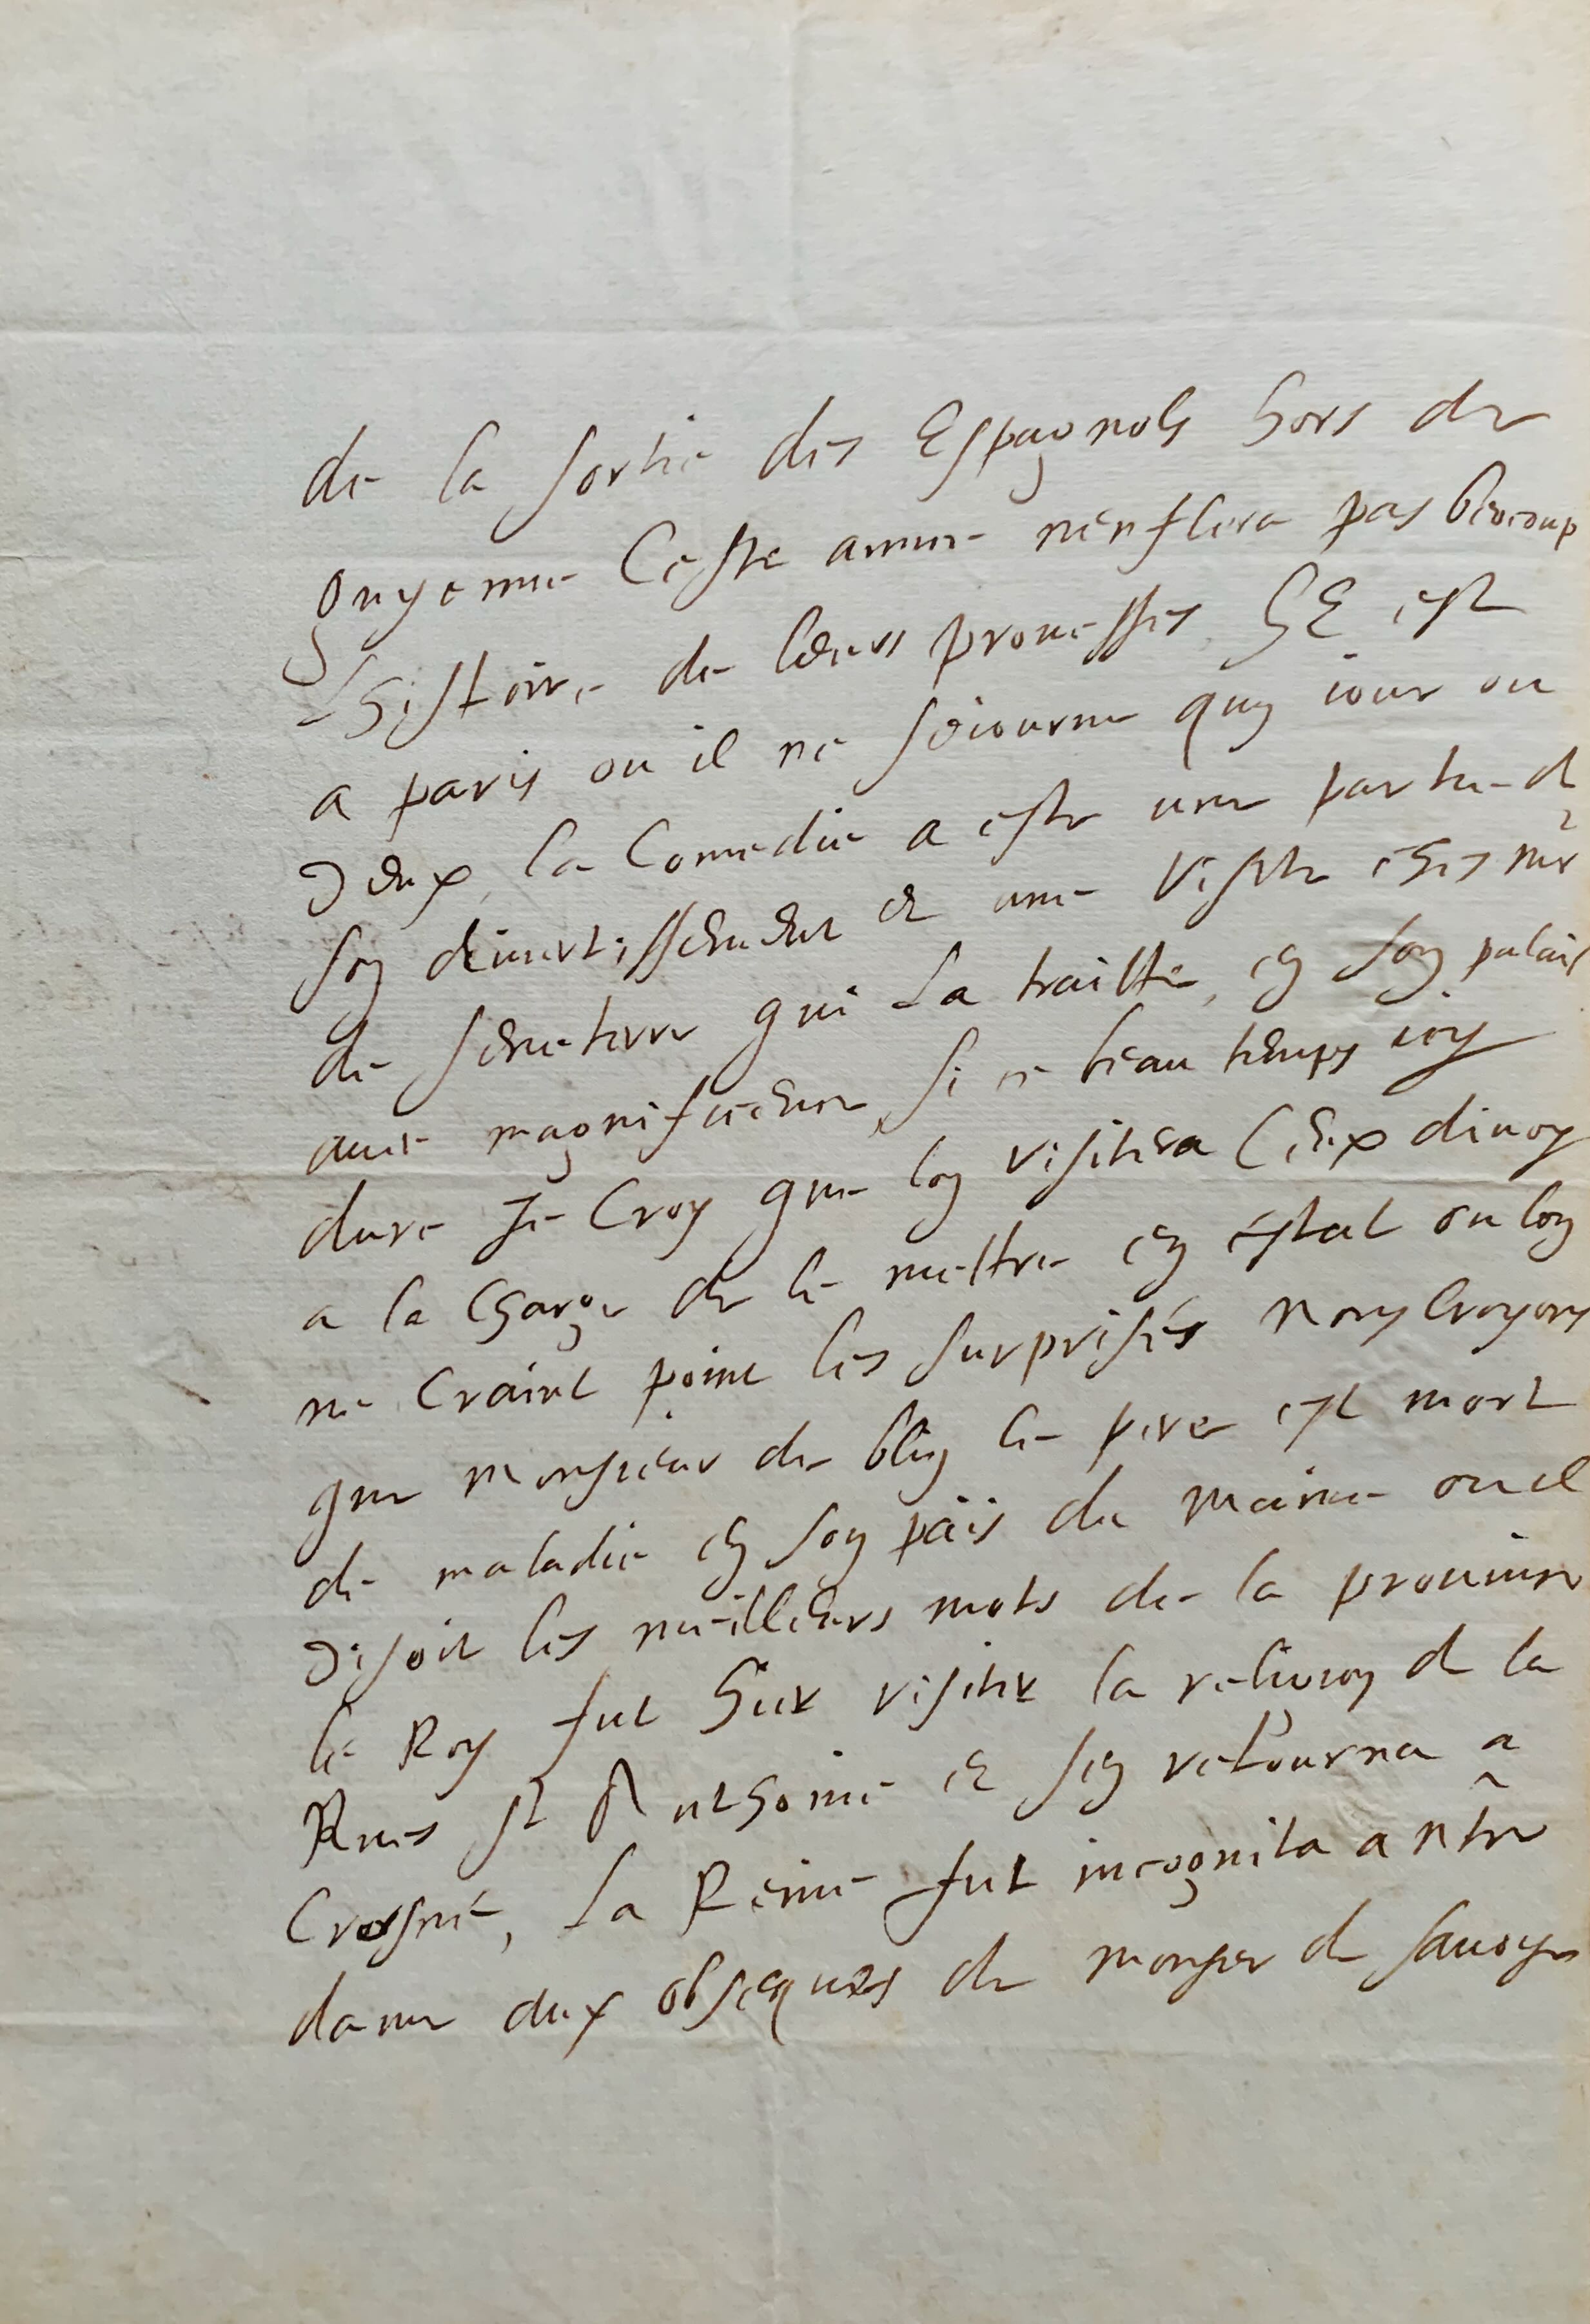 de la sortie des Espagnols hors de
guyenne Ceste annee n'enflera pas beocoup
lhistoire de leurs prouesses SE est
a paris ou il ne seiourne quun iour ou
deux, la Comedie a este une partie de
son diuertissement et une visite ches mr
de seneterre qui la traitte, en son palais
auec magnificence, si ce beau temps icy
dure Je Croy que lon visitera Ceux dinoy
a la Charge de le mettre en estat ou lon
ne Craint point les surprises nous Croyons
que monsieur de blin le pere est mort
de maladie en son païs du maine ou il
disoit les meilleurs mots de la prouince
le Roy fut hier visiter la de la
Rue st Anthoine et sen retourna a
Crosne, La Reine fut incognita a nõtre
dame aux obseques de monser de sauoye